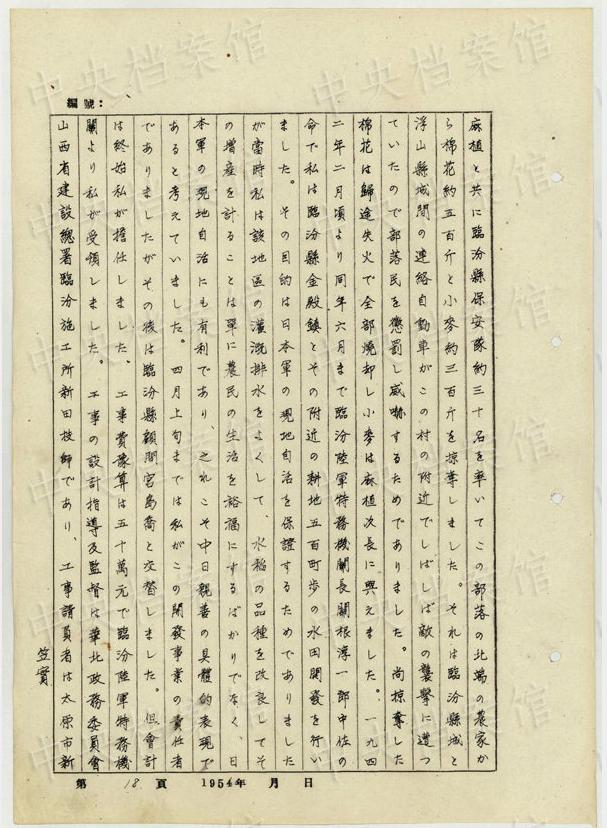 編號：
麻植と共に臨汾縣保安隊約三十名を率いてこの部落の北端の農家か
ら棉花約五百斤と小麥約三百斤を掠奪しました。それは臨汾縣城と
浮山縣城間の連絡自動車がこの村の附近でしばしば敵の襲擊に遭つ
ていたので部落民を懲罰し威嚇するためでありました。尚掠奪した
棉花は歸途失火で全部燒却し小麥は麻植次長に與えました。一九四
二年二月頃より同年六月まで臨汾陸軍特務機關長關根淳一郎中佐の
命で私は臨汾縣金殿鎮とその附近の耕地五百町歩の水田開發を行い
ました。その目的は日本軍の現地自活を保證するためでありました
が當時私は該地區の灌漑排水をよくして、水稻の品種を改良してそ
の増産を計ることは單に農民の生活を裕福にするばかりでなく、日
本軍の現地自活にも有利であり、之れこそ中日親善の具體的表現で
あると考えていました。四月上旬までは私がこの開發事業の責任者
でありましたがその後は臨汾縣顧問宮島喬と交替しました。但會計
は終始私が擔任しました。工事費豫算は五十萬元で臨汾陸軍特務機
關より私が受領しました。工事の設計指導及監督は華北政務委員會
山西省建設總署臨汾施工所新田技師であり、工事請負者は太原市新
笠實
第 18 頁 1954年 月 日
中央档案馆